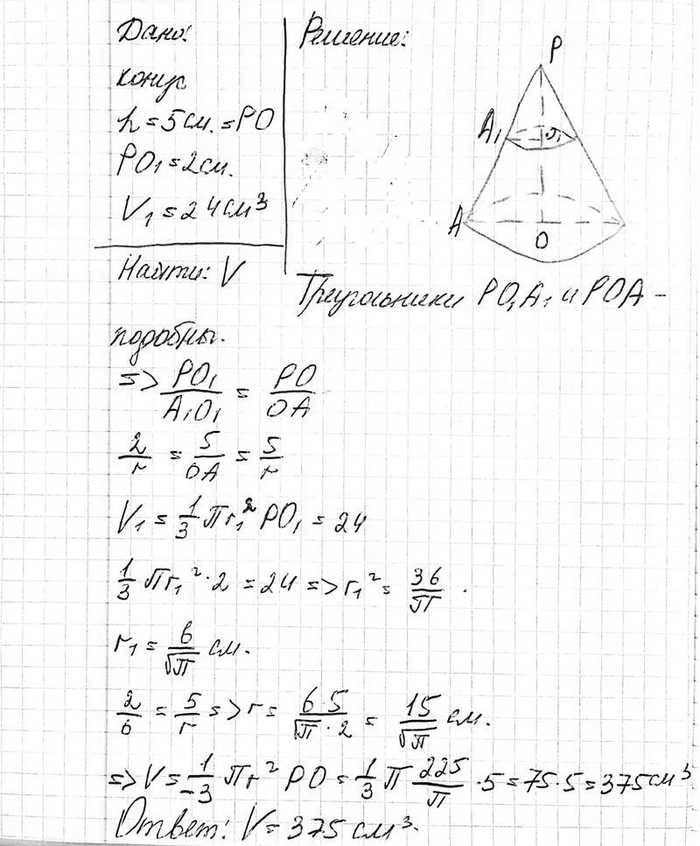 Дано:
Решение:
конус
h = 5 см. = PO
PO₁ = 2 см.
V₁ = 24 см³
Найти: V
P
A₁
O₁
A
O
Треугольники PO₁A₁ и POA –
подобны.
=> PO₁/A₁O₁ = PO/OA
2/r = 5/OA = 5/r
V₁ = 1/3 πr₁² PO₁ = 24
1/3 πr₁² · 2 = 24 => r₁² = 36/π .
r₁ = 6/√π см.
2/6 = 5/r => r = 6·5/√π·2 = 15/√π см.
=> V = 1/3 πr² PO = 1/3 π 225/π · 5 = 75·5 = 375 см³
Ответ: V = 375 см³.